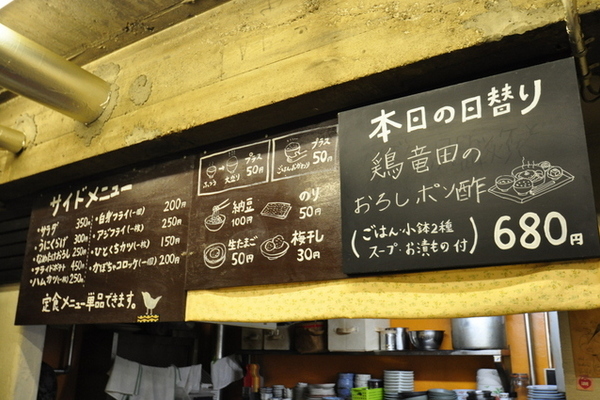 サイドメニュー
・サラダ 350円
・うにくらげ 300円
・なめ茸おろし 250円
・フライドポテト 450円
・ハムカツ(一枚) 250円
・白身フライ(一個) 200円
・アジフライ(一枚) 250円
・ひとくちカツ(一枚) 150円
・かぼちゃコロッケ(一個) 200円
定食メニュー単品できます。
ふつう
大盛り
プラス
50円
プラス
50円
納豆
100円
のり
50円
生たまご
50円
梅干し
30円
本日の日替り
鶏竜田の
おろしポン酢
(ごはん・小鉢2種
スープ・お漬もの付)
680円